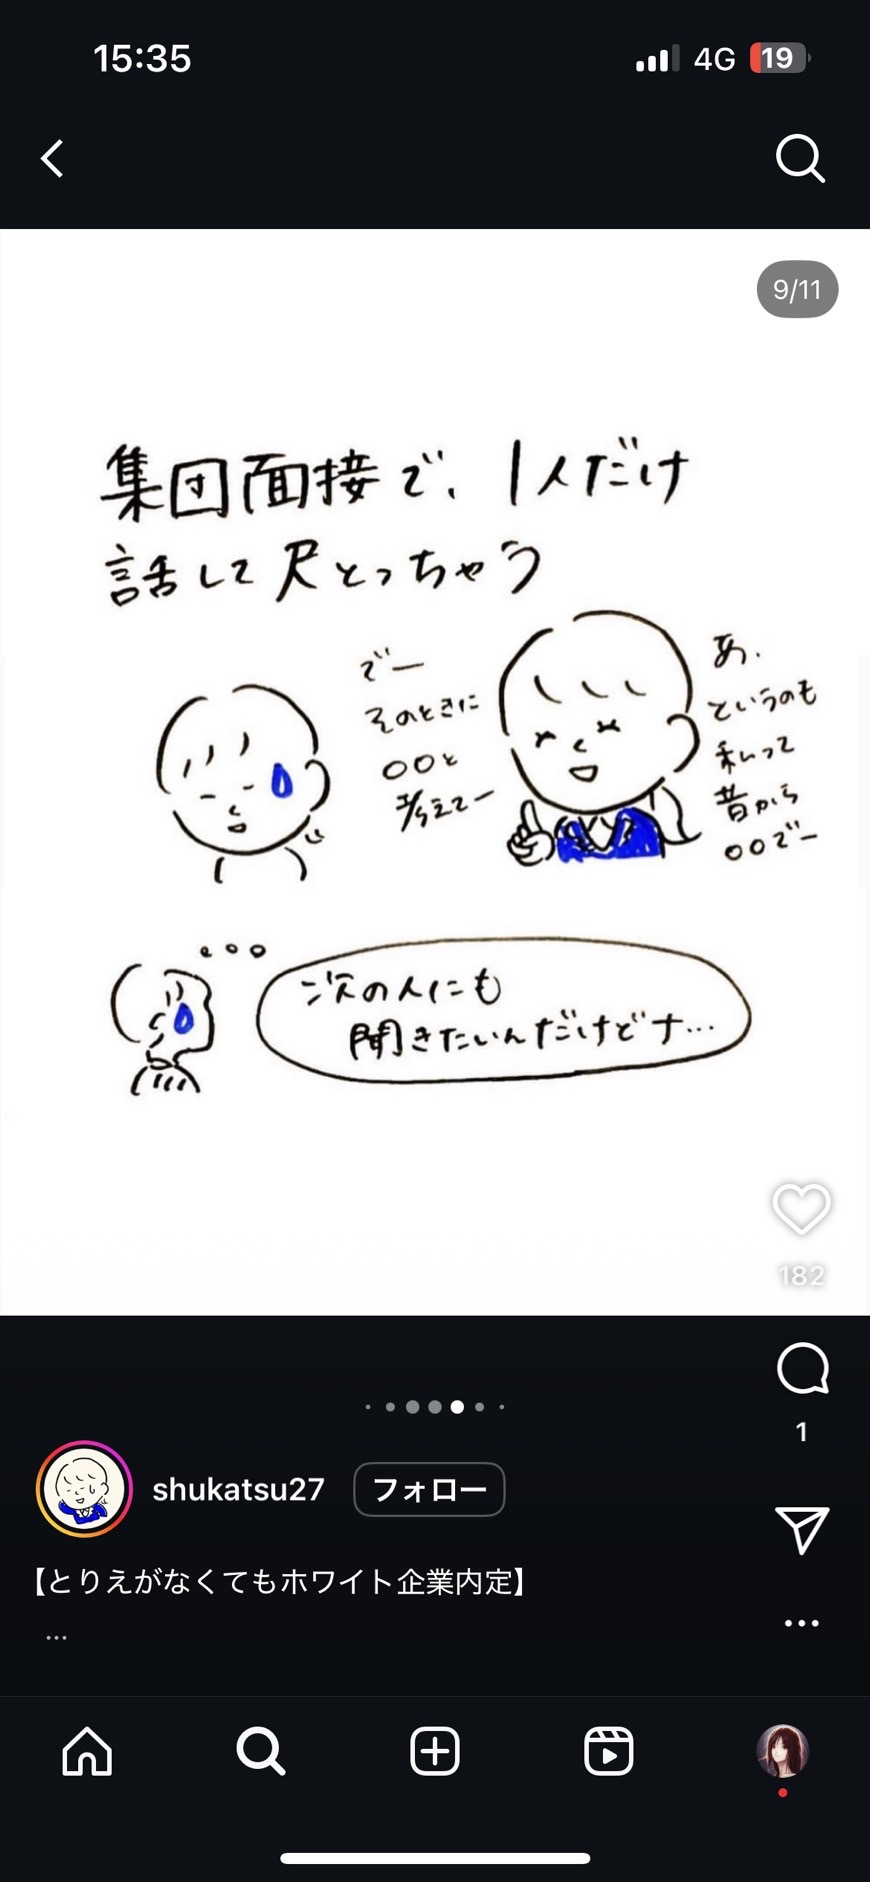 15:35
4G
19
9/11
集団面接で、1人だけ
話して尺とっちゃう
でー
そのときに
○○と
考えてー
あ、
というのも
私って
昔から
○○でー
次の人にも
聞きたいんだけどナ…
182
1
shukatsu27
フォロー
【とりえがなくてもホワイト企業内定】
...